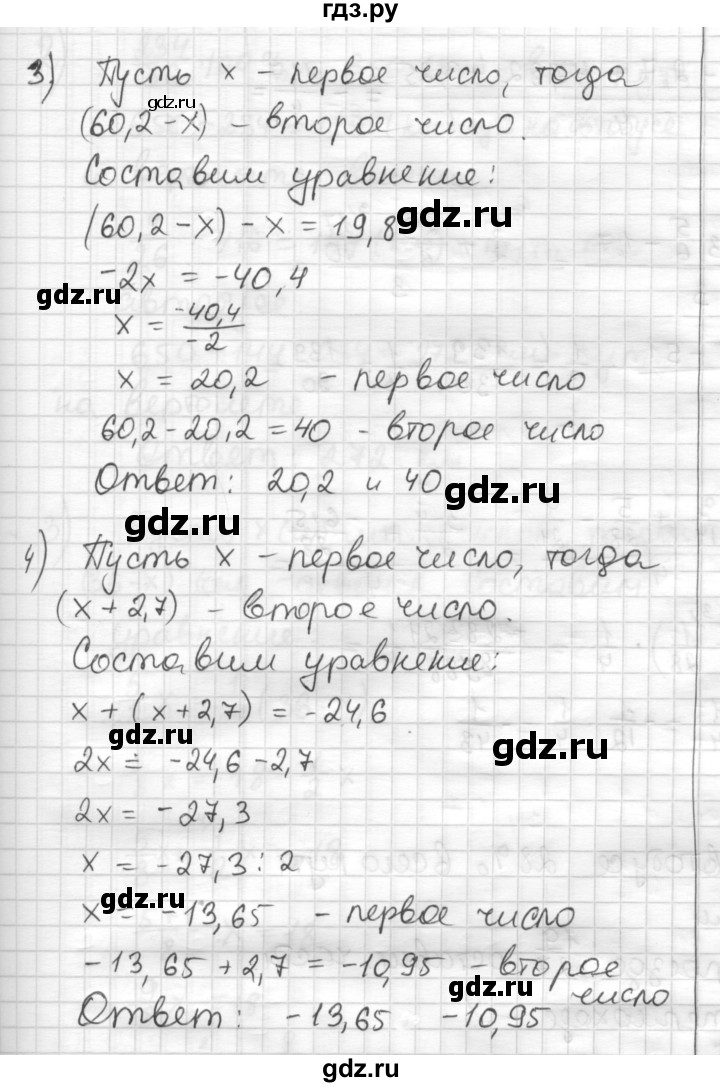 гдз.ру
3) Пусть x – первое число, тогда
gdz.ru
(60,2 – x) – второе число.
Составим уравнение:
(60,2 – x) – x = 19,8
gdz.ru
-2x = -40,4
gdz.ru
x = -40,4 / -2
x = 20,2 – первое число
60,2 - 20,2 = 40 - второе число
Ответ: 20,2 и 40
gdz.ru
gdz.ru
4) Пусть x – первое число, тогда
(x + 2,7) – второе число.
Составим уравнение:
x + (x + 2,7) = -24,6
gdz.ru
gdz.ru
2x = -24,6 - 2,7
2x = -27,3
x = -27,3 : 2
gdz.ru
x = -13,65 - первое число
-13,65 + 2,7 = -10,95 - второе
число
gdz.ru
Ответ: -13,65 -10,95
gdz.ru